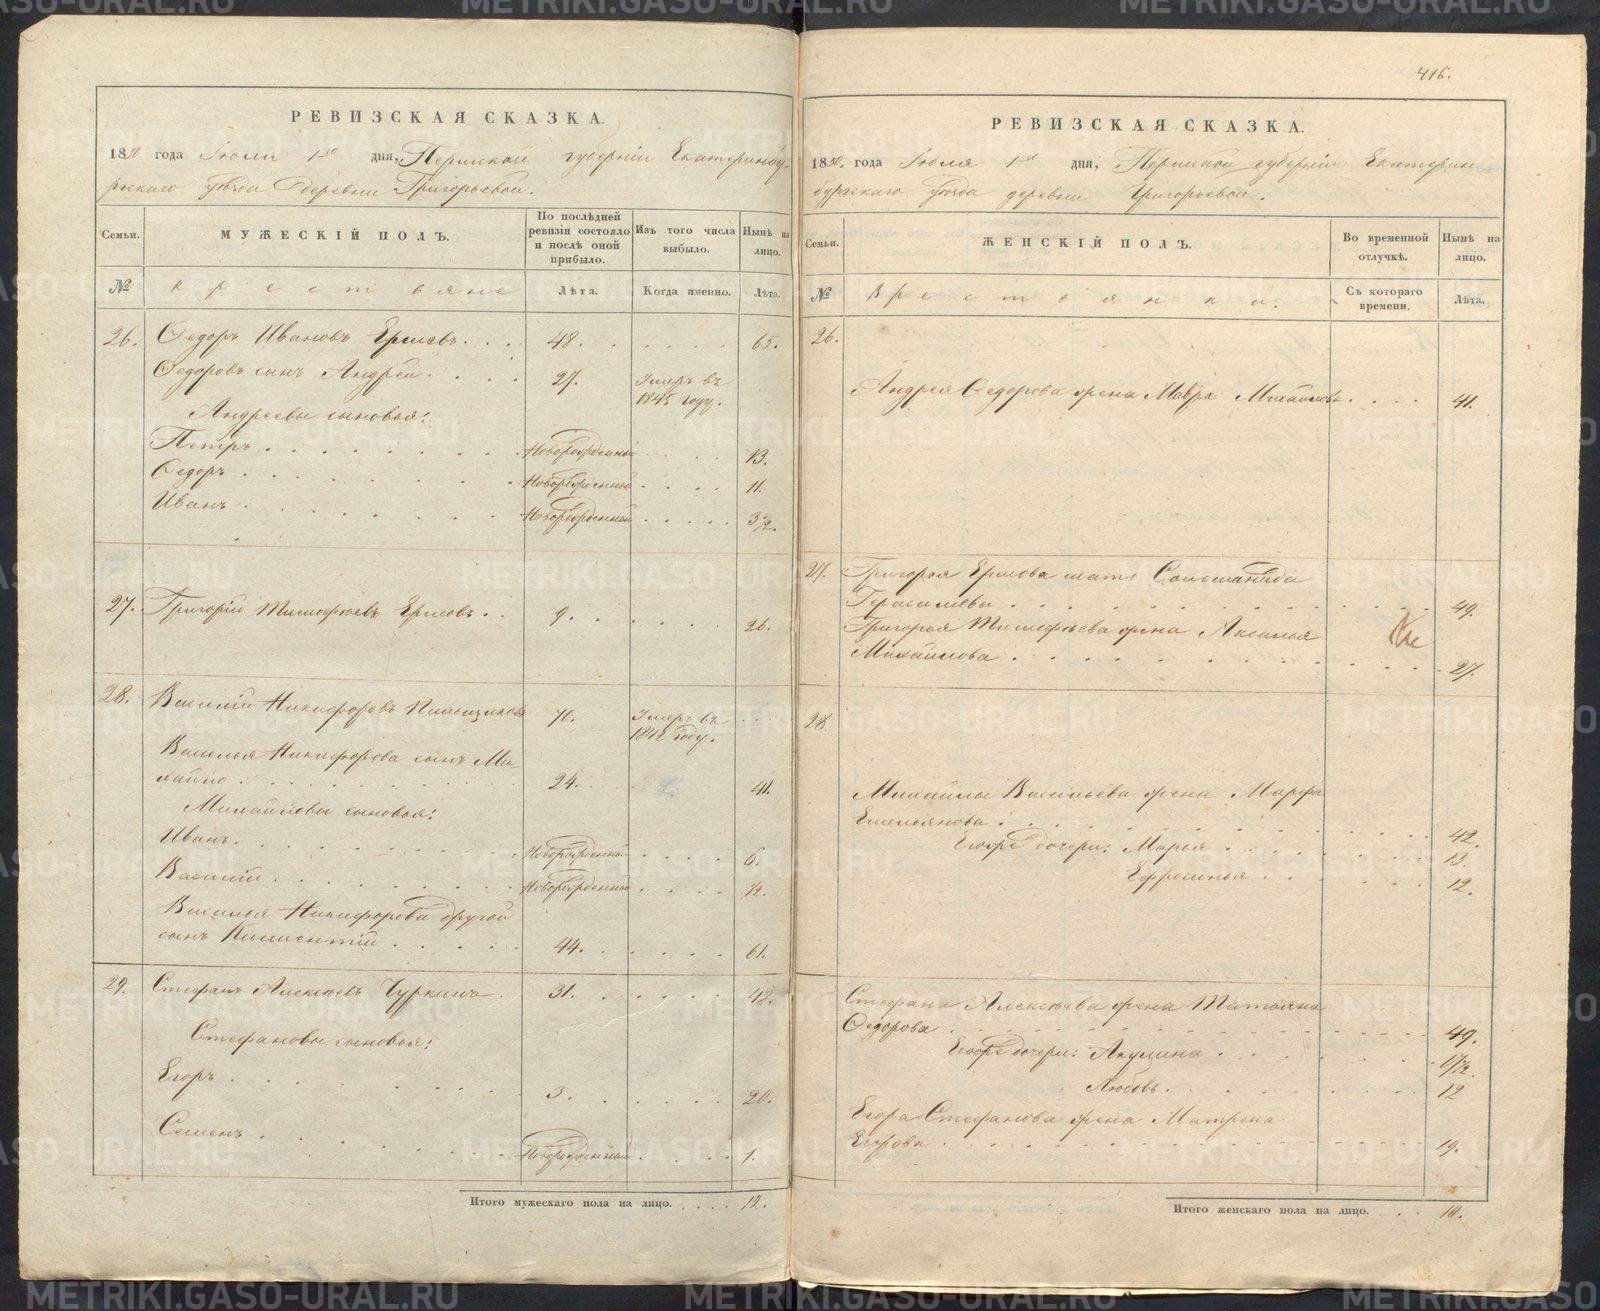 РЕВИЗСКАЯ СКАЗКА.
1850 года Іюля 1го дня, Пермской губерніи Екатеринбу-
ргскаго уѣзда деревни Григорьевой.
Семьи.
МУЖЕСКІЙ ПОЛЪ.
По послѣдней ревизіи состояло и послѣ оной прибыло.
Изъ того числа выбыло.
Нынѣ на лицо.
№
крестьяне
Лѣта.
Когда именно.
Лѣта.
26. Ѳедоръ Ивановъ 48. 65.
Ѳедоровъ сынъ Андрей 27. Умеръ въ 1845 году.
Андреевы сыновья:
Петръ Новорожденный 13.
Ѳедоръ Новорожденный 11.
Иванъ Новорожденный 3 1/2.
27. Григорій Тимофѣевъ 9. 26.
28. Василій Никифоровъ 70. Умеръ въ году.
Василья Никифорова сынъ Ми-
хайло 24. 41.
Михайловы сыновья:
Иванъ Новорожденный 6.
Василій Новорожденный 1/2.
Василья Никифорова другой
сынъ Климентій 44. 61.
29. Стефанъ Алексѣевъ Чуркинъ 31. 48.
Стефановы сыновья:
Егоръ 3. 20.
Семенъ Новорожденный 1.
Итого мужескаго пола на лицо. 12.
416.
РЕВИЗСКАЯ СКАЗКА.
1850 года Іюля 1го дня, Пермской губерніи Екатерин-
бургскаго уѣзда деревни Григорьевой.
Семьи.
ЖЕНСКІЙ ПОЛЪ.
Во временной отлучкѣ.
Нынѣ на лицо.
№
Крестьянки.
Съ котораго времени.
Лѣта.
26.
Андрея Ѳедорова жена Мавра Михайлова 41.
27. Григорья мать Соломанида
Герасимова 49.
Григорья Тимофѣева жена Аксинья
Михайлова 27.
28.
Михайлы Васильева жена Марфа
Емельянова 42.
Егоже дочери: Марья 13.
Ефросинья 12.
Стефана Алексѣева жена Татьяна
Ѳедорова 49.
Егоже дочери: Акулина
Любовь 12
Егора Стефанова жена Матрена
Егорова 19.
Итого женскаго пола на лицо. 10.
METRIKI.GASO-URAL.RU